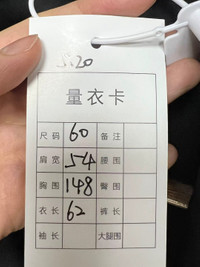 5520
量衣卡
尺码 60 备注
肩宽 54 腰围
胸围 148 臀围
衣长 62 裤长
袖长 大腿围